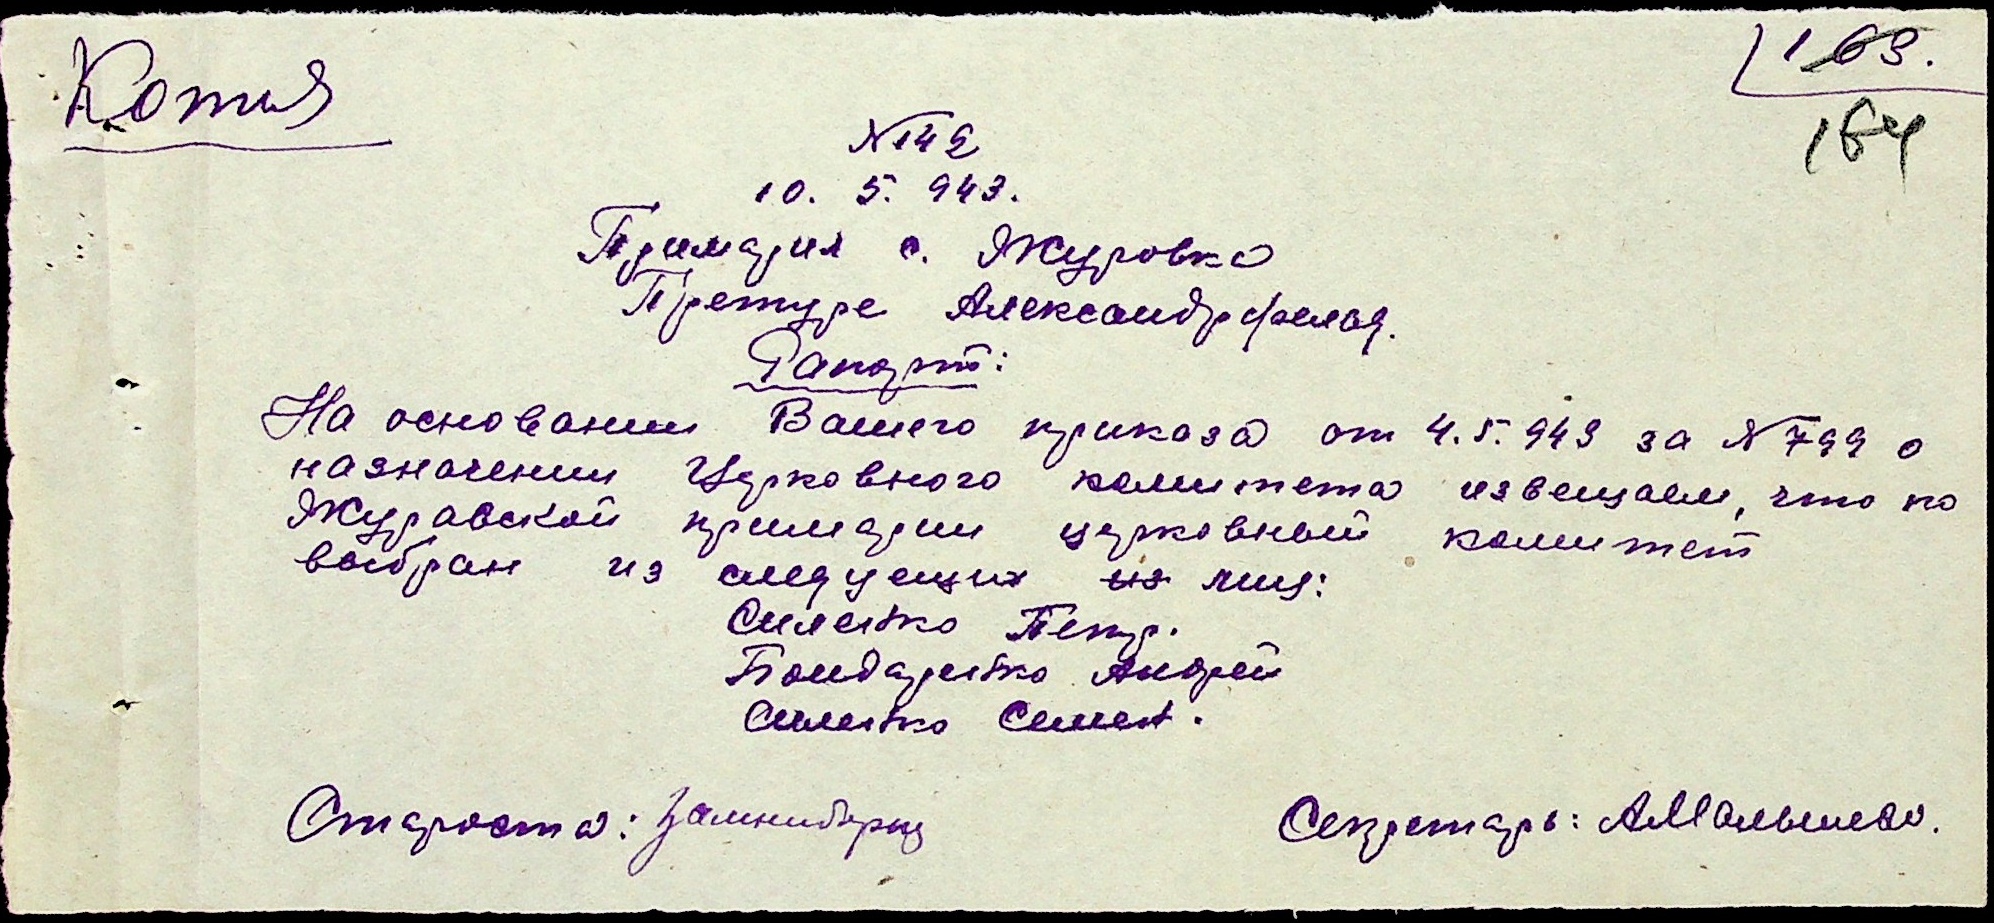 Копия
163.
164
№142
10. 5. 943.
Примария с. Журовка
Претуре Александрфельд.
Рапорт:
На основании Вашего приказа от 4.5.943 за №799 о
назначении Церковного комитета извещаем, что по
Журавской примарии церковный комитет
выбран из следуещих из лиц:
Силенко Петр.
Бондаренко Андрей
Силенко Семен.
Староста:
Секретарь: АМалышева.